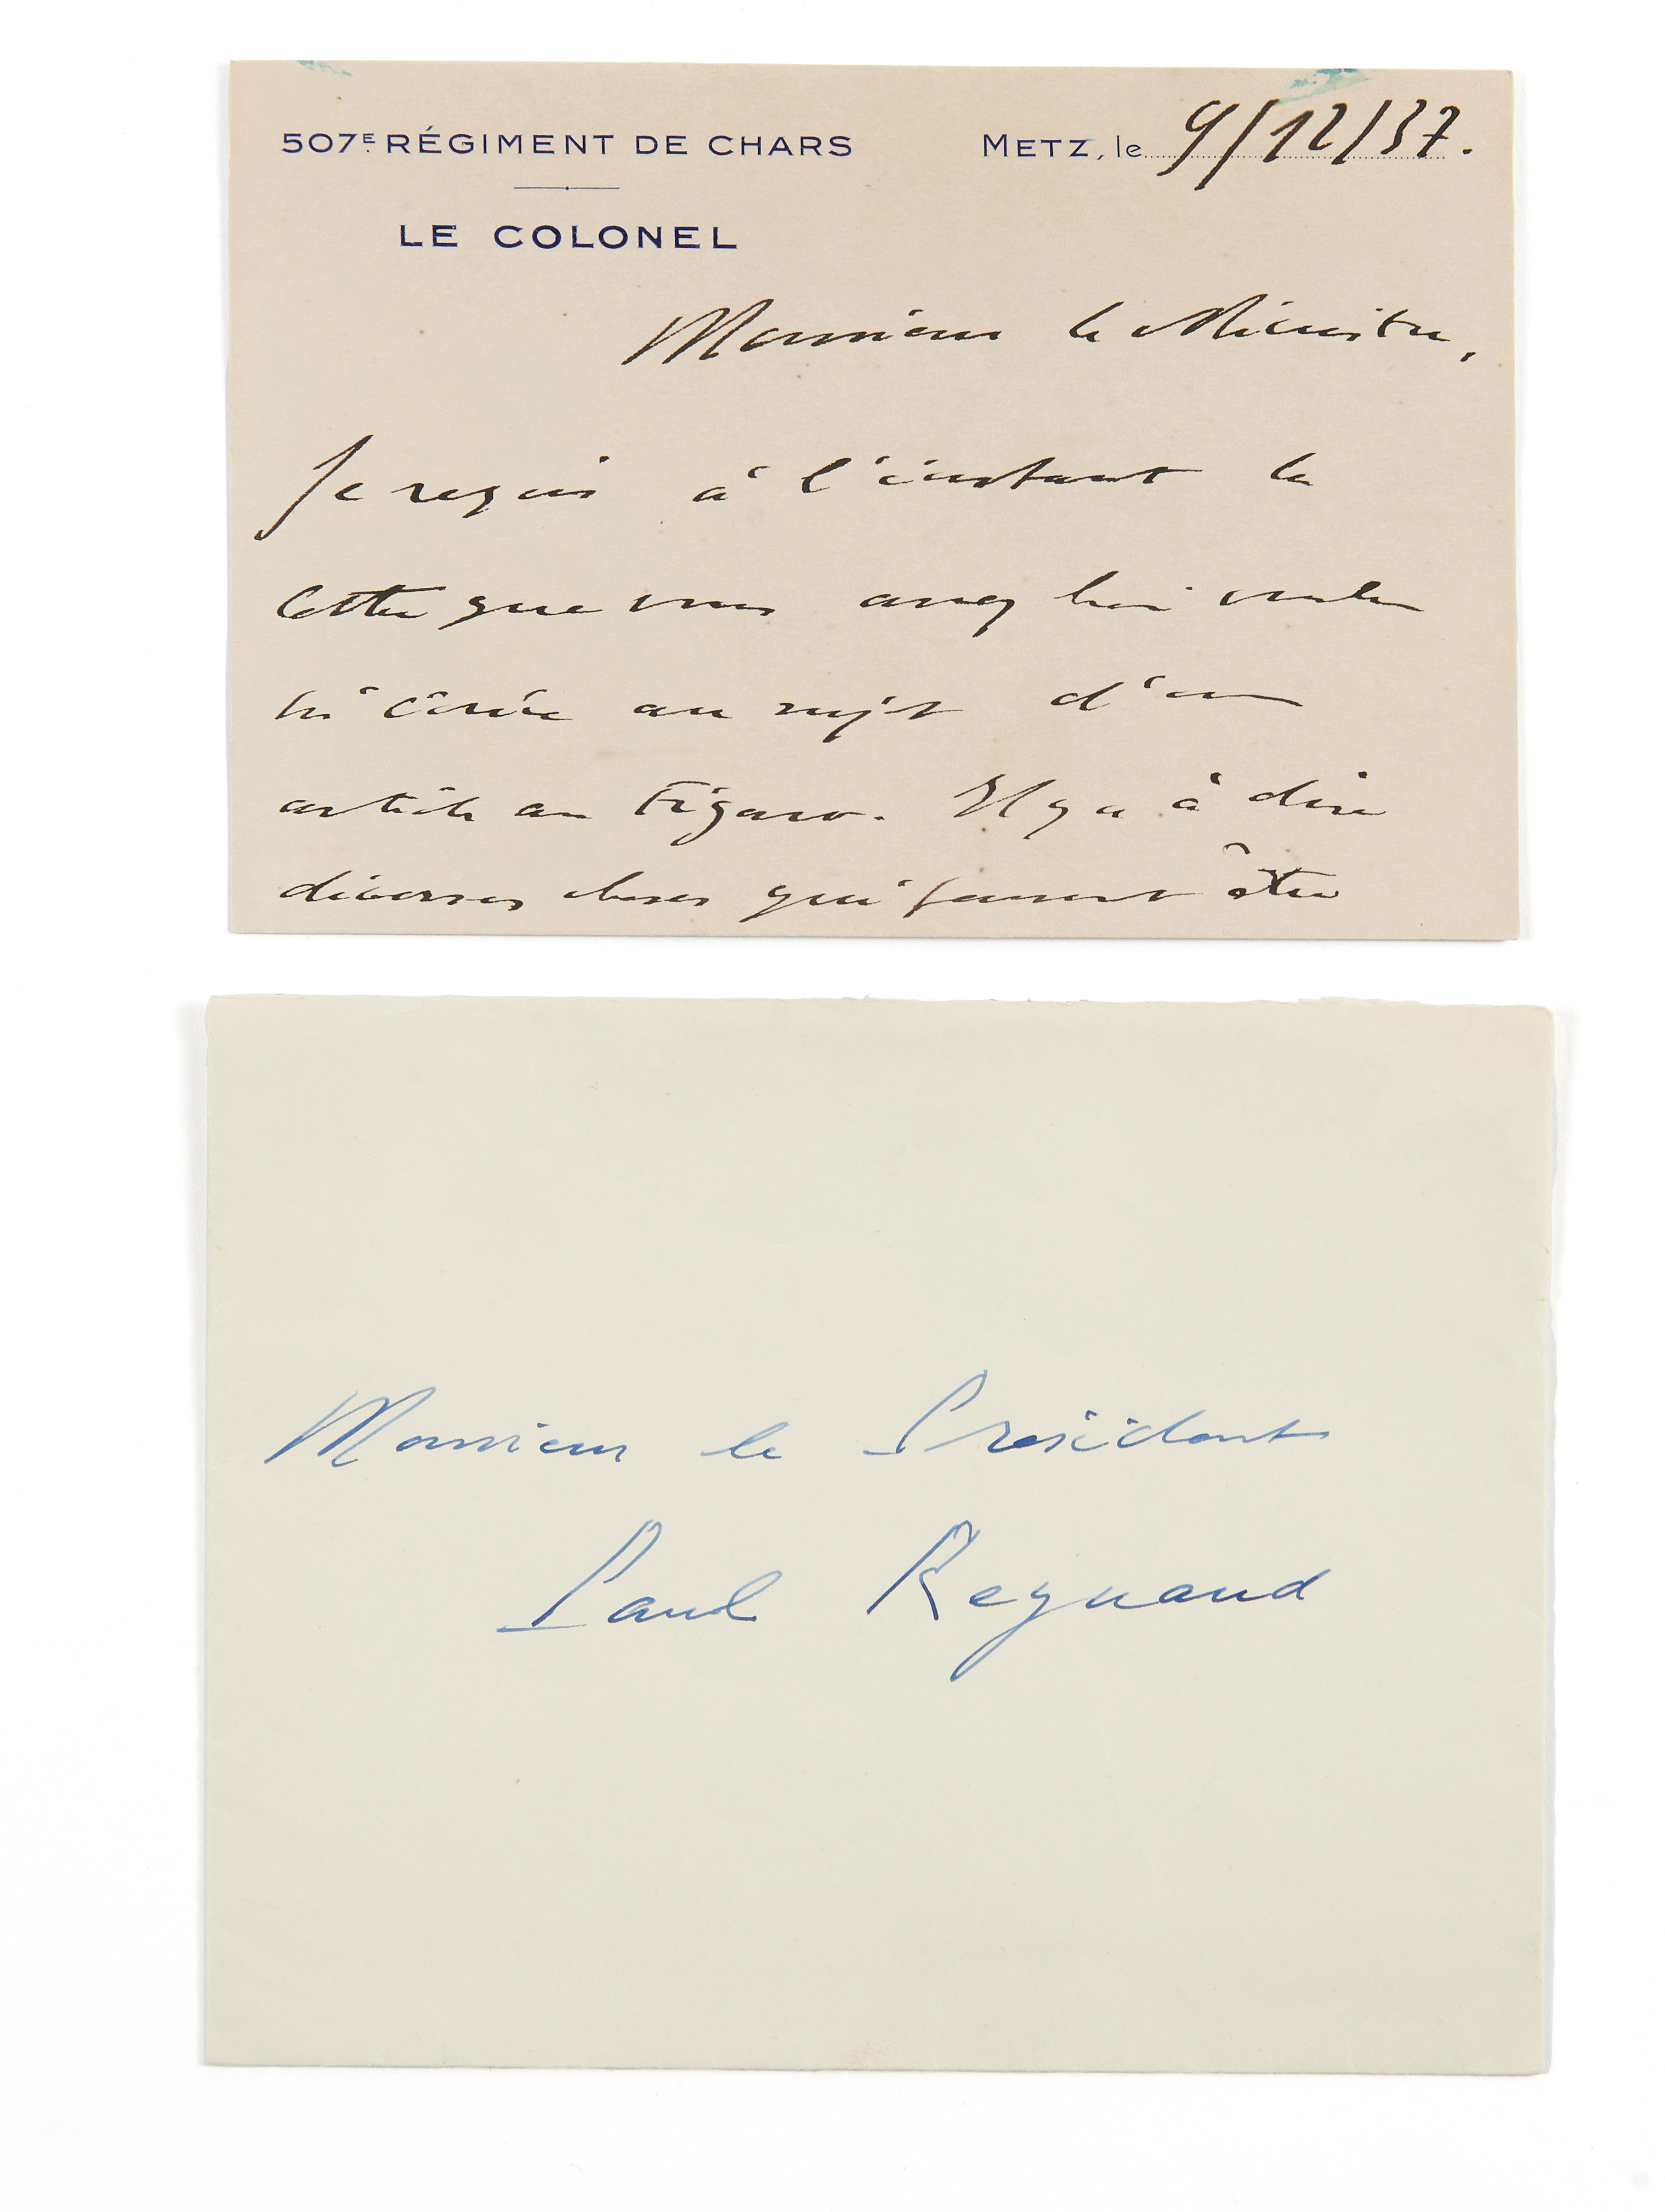 507E RÉGIMENT DE CHARS
METZ, le 9/12/37.
LE COLONEL
Monsieur le Ministre,
Je reçois à l'instant la
lettre que vous avez bien voulu
m'écrire au sujet d'un
article au Figaro. Il y a à dire
diverses choses qui peuvent être
Monsieur le Président
Paul Reynaud